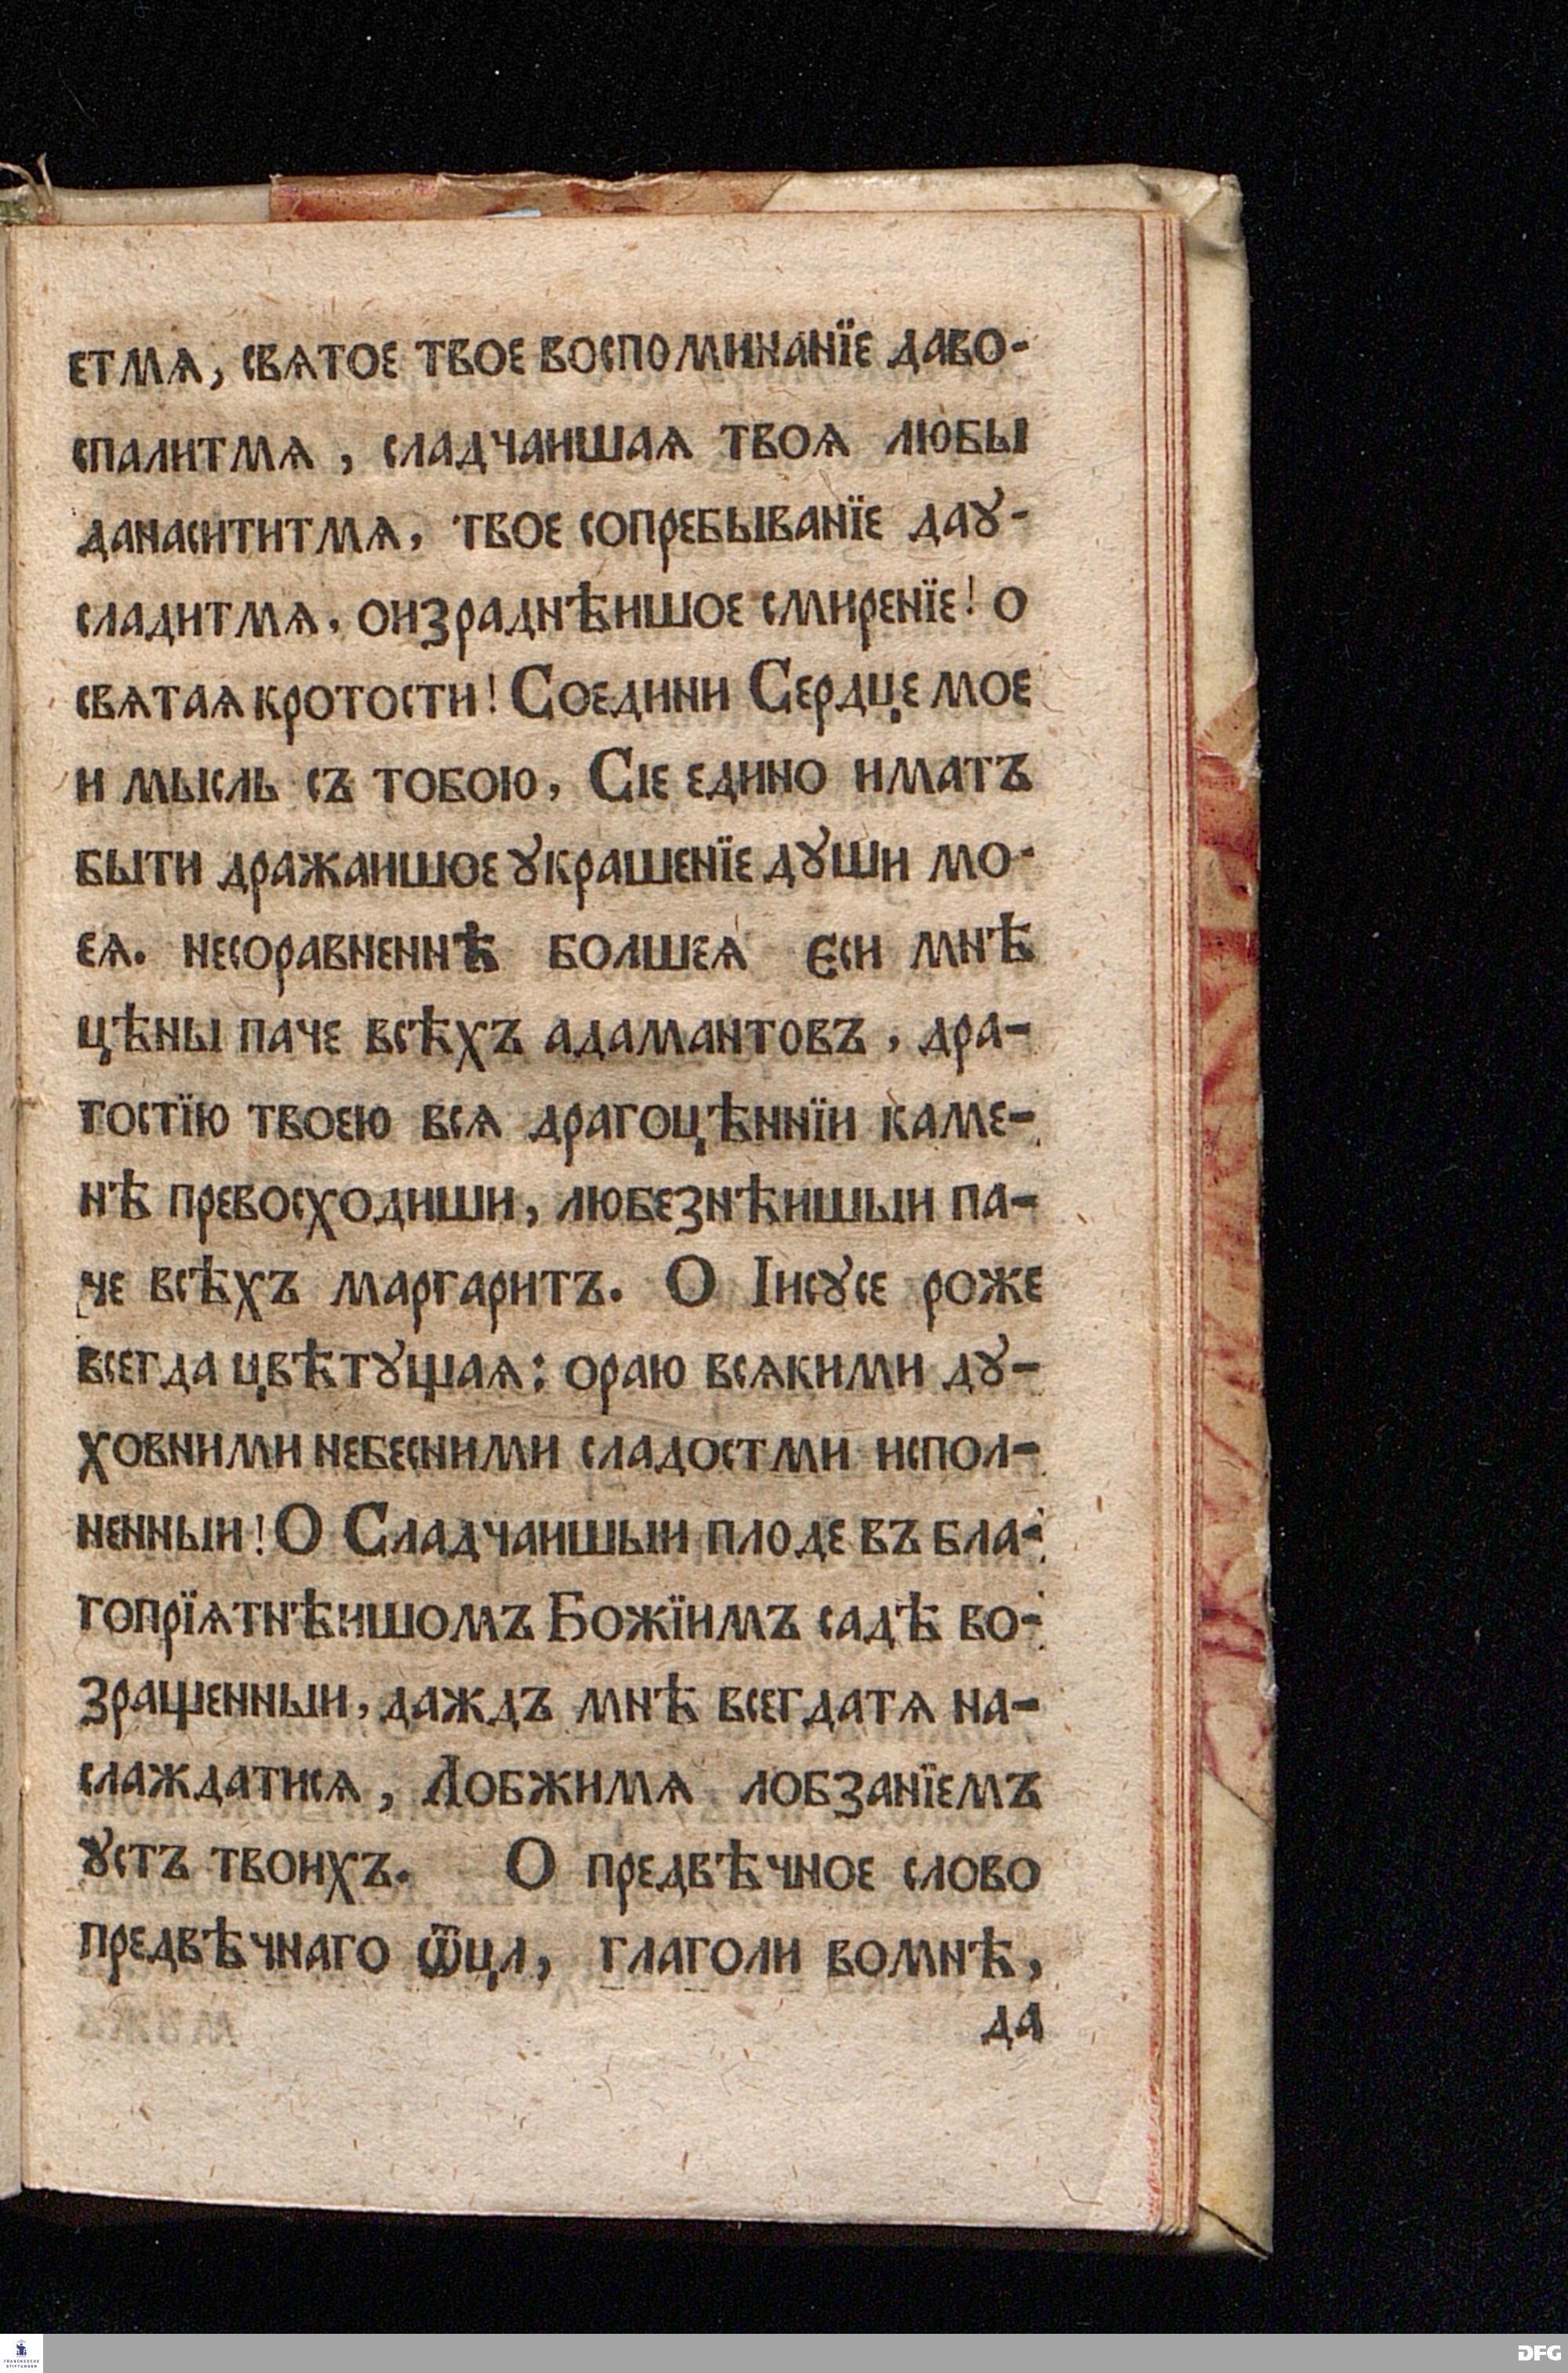 етмѧ, свѧтое твое воспоминанїе даво-
спалитмѧ, сладчаишаѧ твоѧ любы
данасититмѧ, твое сопребыванїе даꙋ-
сладитмѧ. оизраднѣишое смиренїе! о
свѧтаѧ кротости! Соедини Сердце мое
и мысль съ тобою, Сіе едино иматъ
быти дражаишое ꙋкрашенїе дꙋши мо-
еѧ. несоравненнѣ болшеѧ єси мнѣ
цѣны паче всѣхъ адамантовъ, дра-
гостїю твоею всѧ драгоцѣннїи каме-
нѣ превосходиши, любезнѣишыи па-
че всѣхъ маргаритъ. О Іисꙋсе роже
всегда цвѣтꙋщаѧ: ораю всѧкими дꙋ-
ховними небесними сладостми испол-
ненныи! О Сладчаишыи плоде въ бла-
гопрїѧтнѣишомъ Божїимъ садѣ во-
зращенныи, даждъ мнѣ всегдатѧ на-
слаждатисѧ, Лобжимѧ лобзанїемъ
ꙋстъ твоихъ. О предвѣчное слово
предвѣчнаго ѿца, глаголи вомнѣ,
да
FRANCKESCHE
STIFTUNGEN
DFG